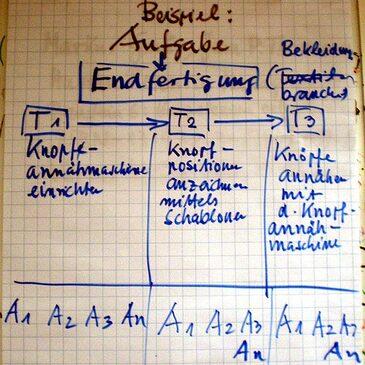 Beispiel:
Aufgabe
Bekleidungs-
Endfertigung (Textil
branche)
T1 T2 T3
Knöpfe-
annähmaschine
einrichten
Knopf-
positionen
anzeichnen
mittels
Schablonen
Knöpfe
annähen
mit
d. Knopf-
annäh-
maschine
A1 A2 A3 An A1 A2 A3 A1 A2 A3
An An